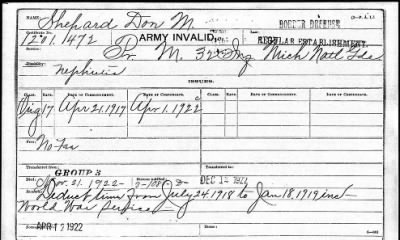 Shepard Don M.
(D.—A. 1.)
1291,472 ARMY INVALID, BORDER DEFENSE
REGULAR ESTABLISHMENT.
Pvt. M. 32 Inf Mich Natl Gds.
Disability:
Nephritis
ISSUES.
CLASS. RATE. DATE OF COMMENCEMENT. DATE OF CERTIFICATE. CLASS. RATE. DATE OF COMMENCEMENT. DATE OF CERTIFICATE.
Orig 17 Apr 21, 1917 Apr 1, 1922
No-Fee
Transferred from:
Transferred to:
GROUP 3
Died Nov. 21. 1922- 3-108 DEC 1922
Deduct time from July 24, 1918 to Jan 18, 1919 incl-
World War service
APR 12 1922